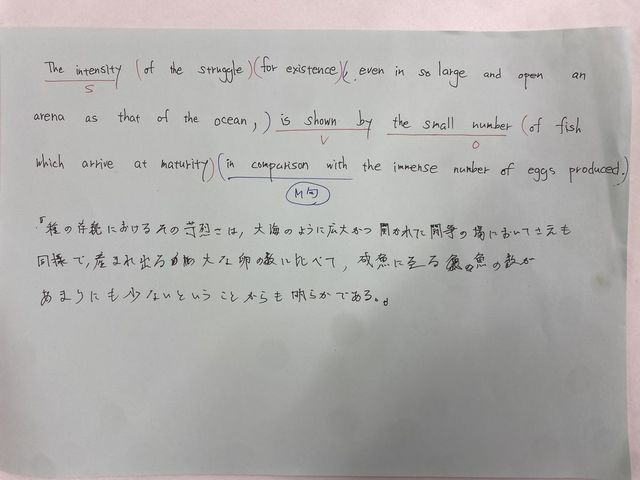 The intensity (of the struggle) (for existence) (, even in so large and open an
S
arena as that of the ocean,) is shown by the small number (of fish
V O
which arrive at maturity) (in comparison with the immense number of eggs produced.)
M句
『種の存続におけるその苛烈さは, 大海のように広大かつ開かれた闘争の場においてさえも
同様で, 産まれ出る 大な卵の数に比べて, 成魚に至る 魚の数が
あまりにも少ないということからも明らかである。』